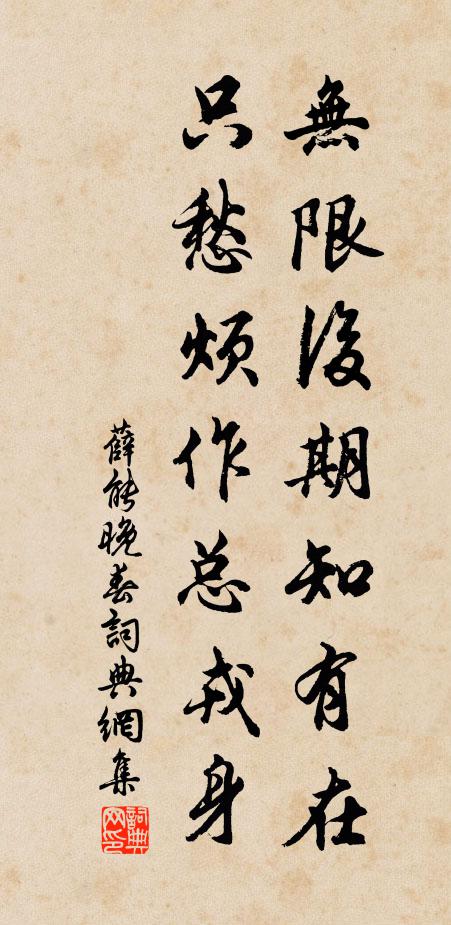 無限後期知有在
只愁煩作总戎身
薛能晚春詞典網集
詞典网印